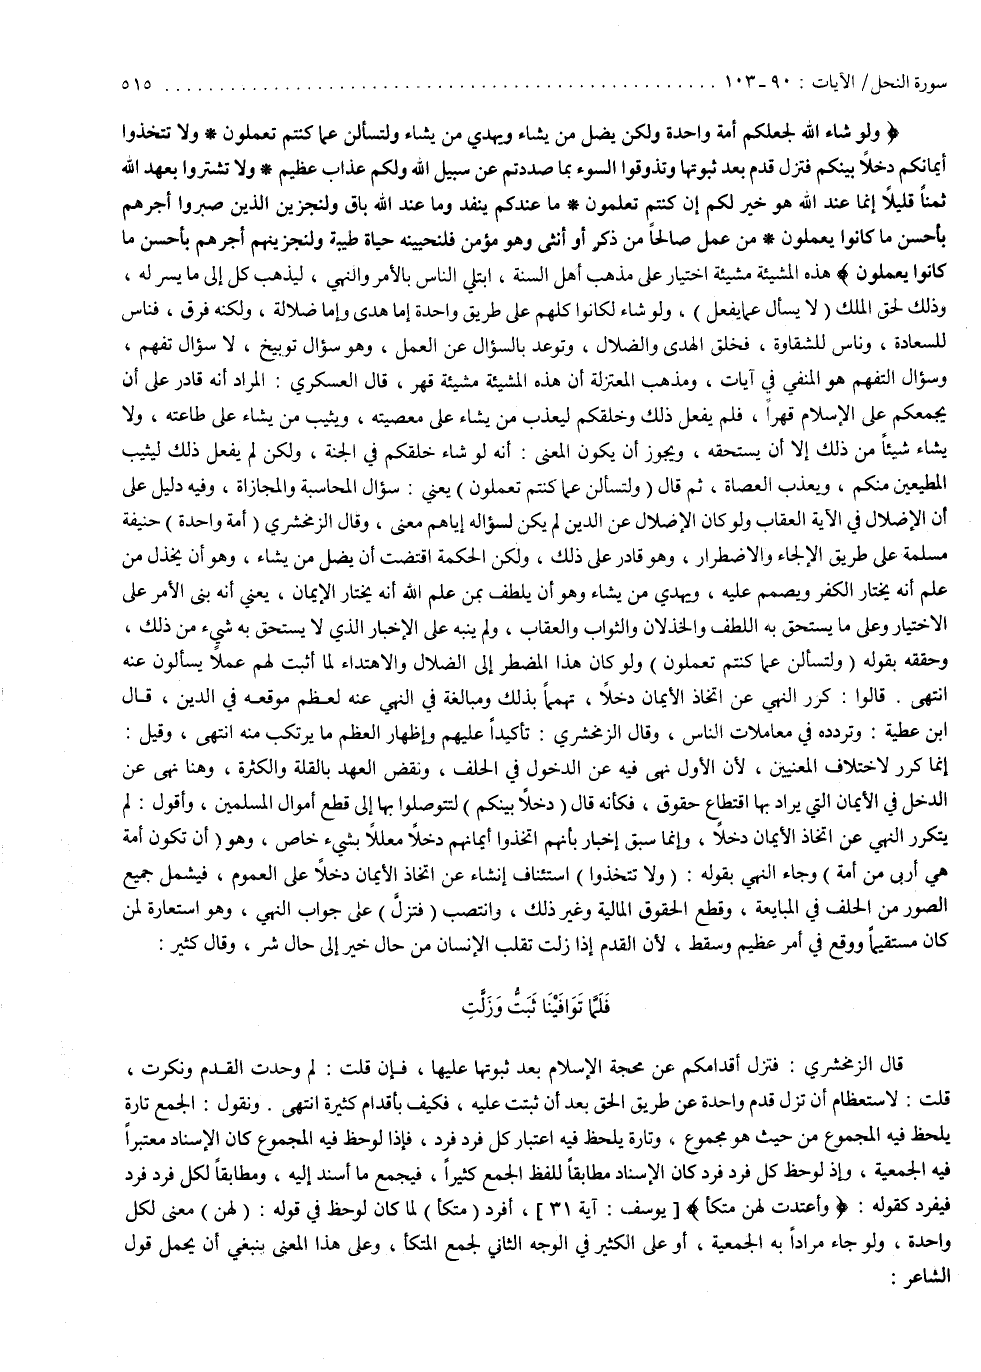 سورة النحل/ الآيات : ٩٠-١٠٣ ........................................................ ٥١٥
﴿ ولو شاء الله لجعلكم أمة واحدة ولكن يضل من يشاء ويهدي من يشاء ولتسألن عما كنتم تعملون * ولا تتخذوا
أيمانكم دخلاً بينكم فتزل قدم بعد ثبوتها وتذوقوا السوء بما صددتم عن سبيل الله ولكم عذاب عظيم * ولا تشتروا بعهد الله
ثمناً قليلاً إنما عند الله هو خير لكم إن كنتم تعلمون * ما عندكم ينفد وما عند الله باق ولنجزين الذين صبروا أجرهم
بأحسن ما كانوا يعملون * من عمل صالحاً من ذكر أو أنثى وهو مؤمن فلنحيينه حياة طيبة ولنجزينهم أجرهم بأحسن ما
كانوا يعملون ﴾ هذه المشيئة مشيئة اختيار على مذهب أهل السنة ، ابتلي الناس بالأمر والنهي ، ليذهب كل إلى ما يسر له ،
وذلك لحق الملك ( لا يسأل عما يفعل ) ، ولو شاء لكانوا كلهم على طريق واحدة إما هدى وإما ضلالة ، ولكنه فرق ، فناس
للسعادة ، وناس للشقاوة ، فخلق الهدى والضلال ، وتوعد بالسؤال عن العمل ، وهو سؤال توبيخ ، لا سؤال تفهم ،
وسؤال التفهم هو المنفي في آيات ، ومذهب المعتزلة أن هذه المشيئة مشيئة قهر ، قال العسكري : المراد أنه قادر على أن
يجمعكم على الإسلام قهراً ، فلم يفعل ذلك وخلقكم ليعذب من يشاء على معصيته ، ويثيب من يشاء على طاعته ، ولا
يشاء شيئاً من ذلك إلا أن يستحقه ، ويجوز أن يكون المعنى : أنه لو شاء خلقكم في الجنة ، ولكن لم يفعل ذلك ليثيب
المطيعين منكم ، ويعذب العصاة ، ثم قال ( ولتسألن عما كنتم تعملون ) يعني : سؤال المحاسبة والمجازاة ، وفيه دليل على
أن الإضلال في الآية العقاب ولو كان الإضلال عن الدين لم يكن لسؤاله إياهم معنى ، وقال الزمخشري ( أمة واحدة ) حنيفة
مسلمة على طريق الإلجاء والاضطرار ، وهو قادر على ذلك ، ولكن الحكمة اقتضت أن يضل من يشاء ، وهو أن يخذل من
علم أنه يختار الكفر ويصمم عليه ، ويهدي من يشاء وهو أن يلطف بمن علم الله أنه يختار الإيمان ، يعني أنه بنى الأمر على
الاختيار وعلى ما يستحق به اللطف والخذلان والثواب والعقاب ، ولم ينبه على الإخبار الذي لا يستحق به شيء من ذلك ،
وحققه بقوله ( ولتسألن عما كنتم تعملون ) ولو كان هذا المضطر إلى الضلال والاهتداء لما أثبت لهم عملاً يسألون عنه
انتهى . قالوا : كرر النهي عن اتخاذ الأيمان دخلاً ، تهمماً بذلك ومبالغة في النهي عنه لعظم موقعه في الدين ، قال
ابن عطية : وتردده في معاملات الناس ، وقال الزمخشري : تأكيداً عليهم وإظهار العظم ما يرتكب منه انتهى ، وقيل :
إنما كرر لاختلاف المعنيين ، لأن الأول نهى فيه عن الدخول في الحلف ، ونقض العهد بالقلة والكثرة ، وهنا نهى عن
الدخل في الأيمان التي يراد بها اقتطاع حقوق ، فكأنه قال ( دخلاً بينكم ) لتتوصلوا بها إلى قطع أموال المسلمين ، وأقول : لم
يتكرر النهي عن اتخاذ الأيمان دخلاً ، وإنما سبق إخبار بأنهم اتخذوا أيمانهم دخلاً معللاً بشيء خاص ، وهو ( أن تكون أمة
هي أربى من أمة ) وجاء النهي بقوله : ( ولا تتخذوا ) استئناف إنشاء عن اتخاذ الأيمان دخلاً على العموم ، فيشمل جميع
الصور من الحلف في المبايعة ، وقطع الحقوق المالية وغير ذلك ، وانتصب ( فتزلّ ) على جواب النهي ، وهو استعارة لمن
كان مستقيماً ووقع في أمر عظيم وسقط ، لأن القدم إذا زلت تقلب الإنسان من حال خير إلى حال شر ، وقال كثير :
فَلَمَّا تَوَافَيْنَا ثَبَتُّ وَزَلَّتِ
قال الزمخشري : فتزل أقدامكم عن محجة الإسلام بعد ثبوتها عليها ، فإن قلت : لم وحدت القدم ونكرت ،
قلت : لاستعظام أن تزل قدم واحدة عن طريق الحق بعد أن ثبتت عليه ، فكيف بأقدام كثيرة انتهى . ونقول : الجمع تارة
يلحظ فيه المجموع من حيث هو مجموع ، وتارة يلحظ فيه اعتبار كل فرد فرد ، فإذا لوحظ فيه المجموع كان الإسناد معتبراً
فيه الجمعية ، وإذ لوحظ كل فرد فرد كان الإسناد مطابقاً للفظ الجمع كثيراً ، فيجمع ما أسند إليه ، ومطابقاً لكل فرد فرد
فيفرد كقوله : ﴿ وأعتدت لهن متكأ ﴾ [ يوسف : آية ٣١ ] ، أفرد ( متكأ ) لما كان لوحظ في قوله : ( لهن ) معنى لكل
واحدة ، ولو جاء مراداً به الجمعية ، أو على الكثير في الوجه الثاني لجمع المتكأ ، وعلى هذا المعنى ينبغي أن يحمل قول
الشاعر :